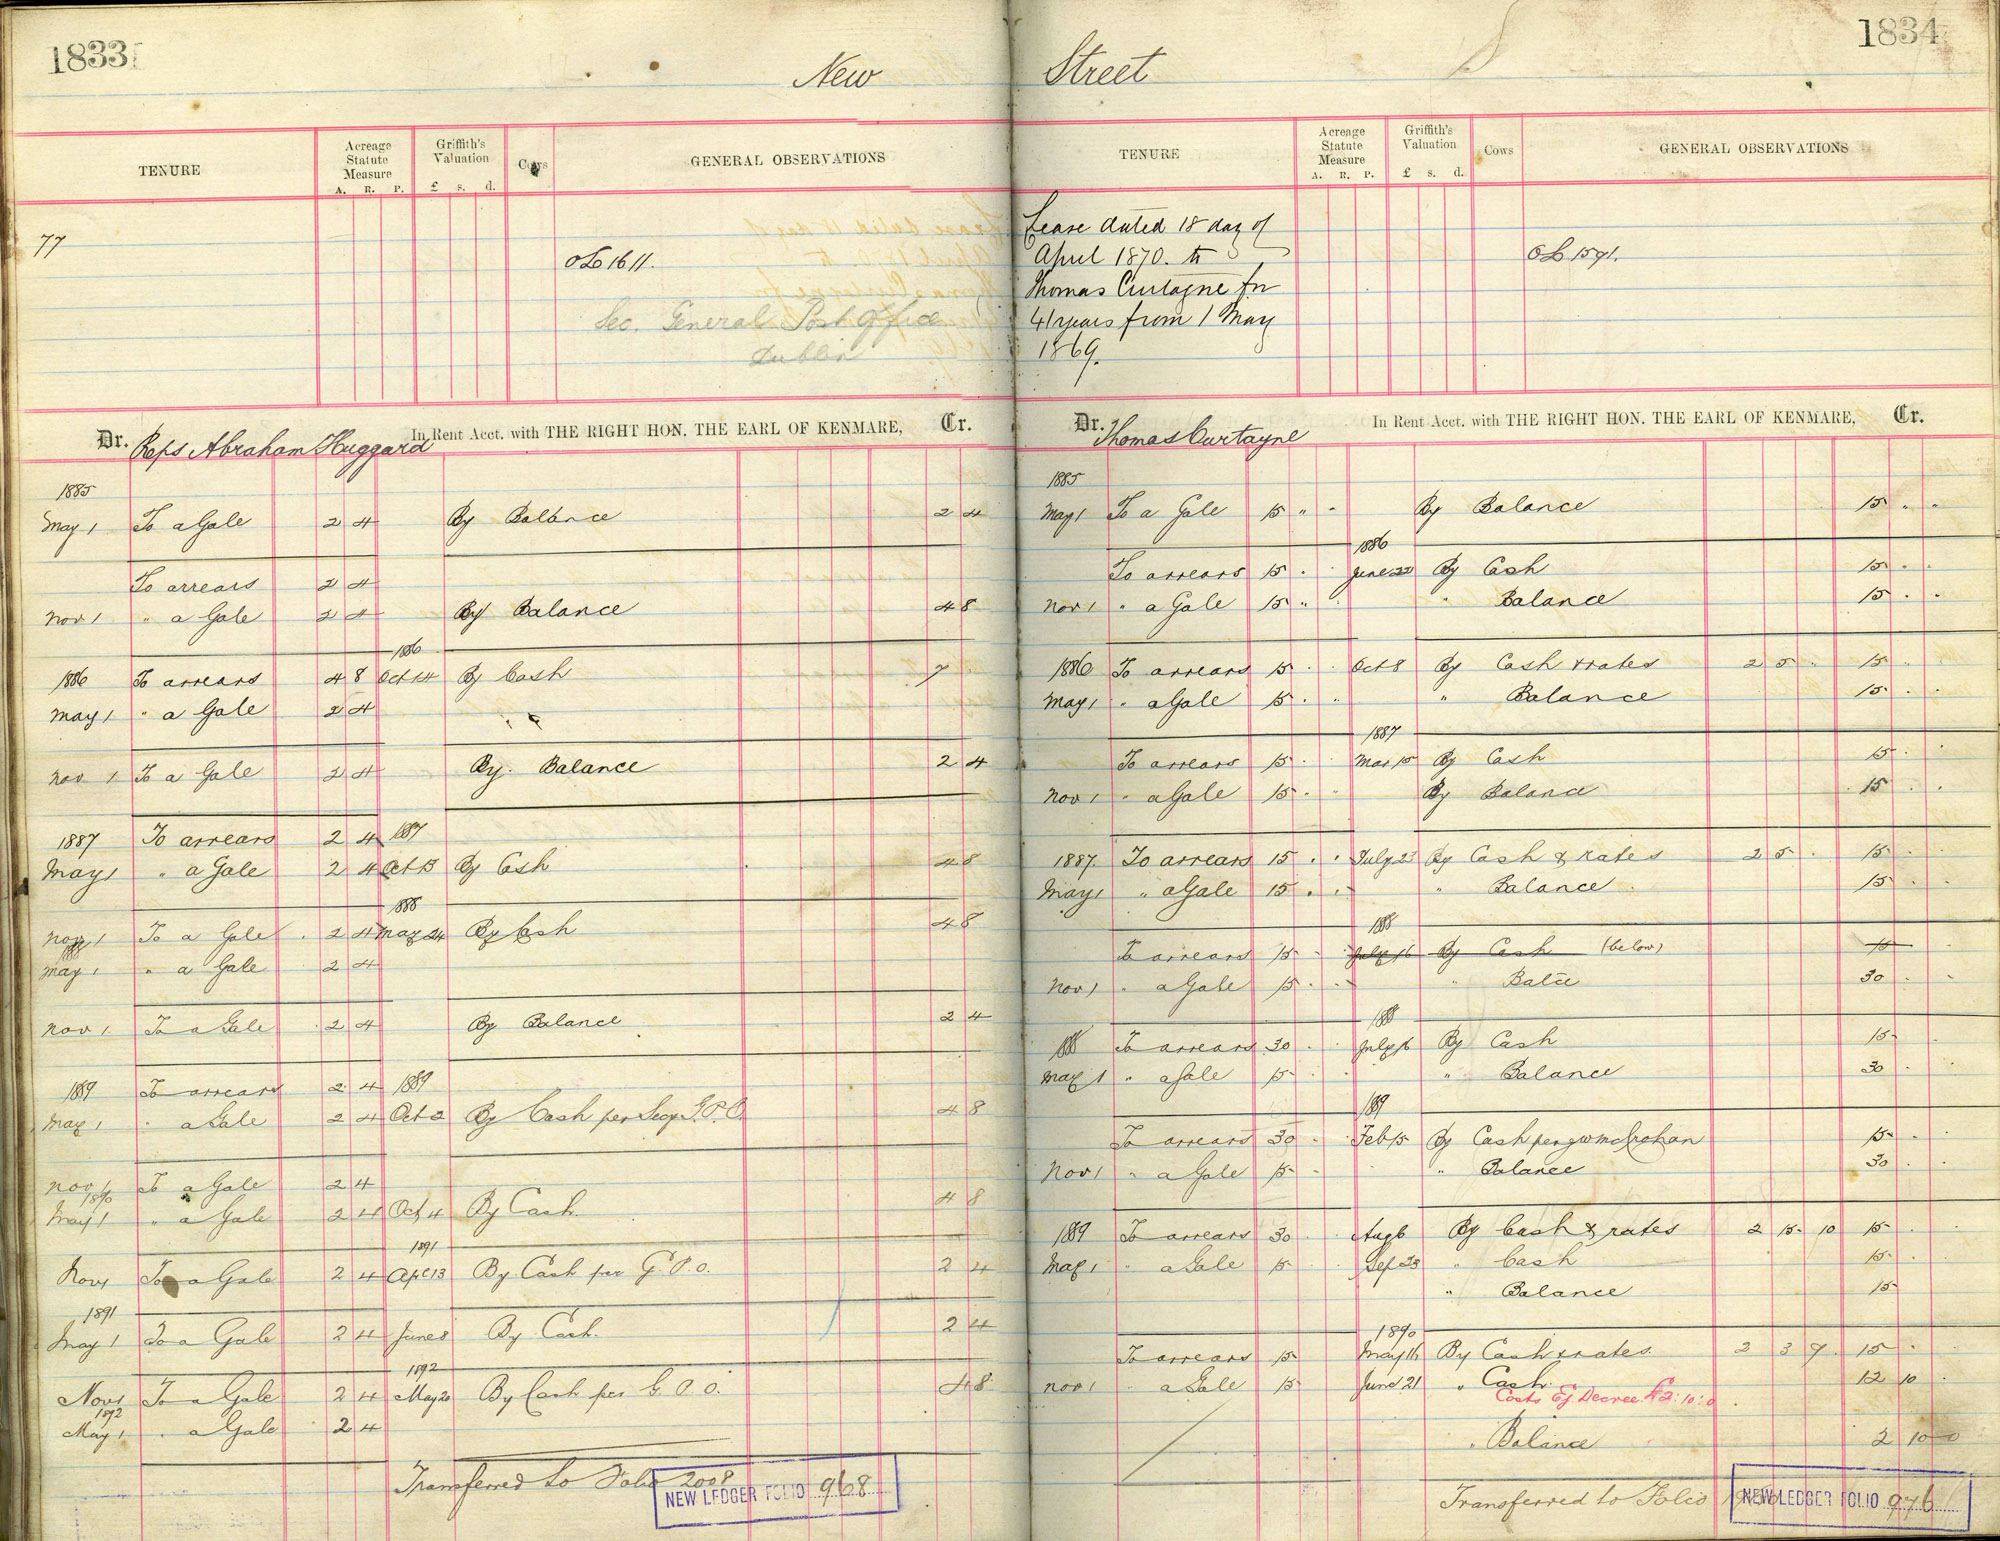 1833
New
TENURE
Acreage Statute Measure
A. R. P.
Griffith's Valuation
£ s. d.
Cows
GENERAL OBSERVATIONS
77
OL 1611.
Sec. General Post Office
Dublin
Dr. Reps Abraham Huggard In Rent Acct. with THE RIGHT HON. THE EARL OF KENMARE, Cr.
1885
May 1 To a Gale 2 4 By Balance 2 4
To arrears 2 4
Nov 1 " a Gale 2 4 By Balance 4 8
1886
1886 To arrears 4 8 Oct 14 By Cash 7
May 1 " a Gale 2 4
Nov 1 To a Gale 2 4 By Balance 2 4
1887 To arrears 2 4 1887
May 1 " a Gale 2 4 Oct 15 By Cash 4 8
1888
Nov 1 To a Gale 2 4 May 24 By Cash 4 8
1888
May 1 " a Gale 2 4
Nov 1 To a Gale 2 4 By Balance 2 4
1889 To arrears 2 4 1889
May 1 " a Gale 2 4 Oct 2 By Cash per Secy G.P.O. 4 8
Nov 1 To a Gale 2 4
1890
May 1 " a Gale 2 4 Oct 4 By Cash. 4 8
1891
Nov 1 To a Gale 2 4 Apl 13 By Cash per G.P.O. 2 4
1891
May 1 To a Gale 2 4 June 8 By Cash. 2 4
1892
Nov 1 To a Gale 2 4 May 20 By Cash per G.P.O. 4 8
1892
May 1 " a Gale 2 4
Transferred to Folio 2008
NEW LEDGER FOLIO 968
1834
Street
TENURE
Acreage Statute Measure
A. R. P.
Griffith's Valuation
£ s. d.
Cows
GENERAL OBSERVATIONS
Lease dated 18 day of
April 1870. to
Thomas Curtayne for
41 years from 1 May
1869.
OL 1591.
Dr. Thomas Curtayne In Rent Acct. with THE RIGHT HON. THE EARL OF KENMARE, Cr.
1885
May 1 To a Gale 15 " " By Balance 15 " "
1886
To arrears 15 " " June 22 By Cash 15 " "
Nov 1 " a Gale 15 " " " Balance 15 " "
1886 To arrears 15 " " Oct 8 By Cash & rates 2 5 " 15 " "
May 1 " a Gale 15 " " " Balance 15 " "
1887
To arrears 15 " " Mar 15 By Cash 15 " "
Nov 1 " a Gale 15 " " By Balance 15 " "
1887. To arrears 15 " " July 23 By Cash & rates 2 5 " 15 " "
May 1 " a Gale 15 " " " Balance 15 " "
1888
To arrears 15 " " July 16 By Cash (below) 15
Nov 1 " a Gale 15 " " " Balce 30 " "
1888
1888 To arrears 30 " " July 16 By Cash 15 "
May 1 " a Gale 15 " " Balance 30 "
1889
To arrears 30 " Feb 15 By Cash per 15 "
Nov 1 " a Gale 15 " " Balance 30 "
1889 To arrears 30 Aug 6 By Cash & rates 2 15 10 15 "
May 1 " a Gale 15 Sep 23 " Cash 15 "
" Balance 15
1890
To arrears 15 May 16 By Cash & rates. 2 3 9 15 "
Nov 1 " a Gale 15 June 21 " Cash. 12 10 "
Costs Ej. Decree £2:10:0
" Balance 2 10 0
Transferred to Folio
NEW LEDGER FOLIO 976